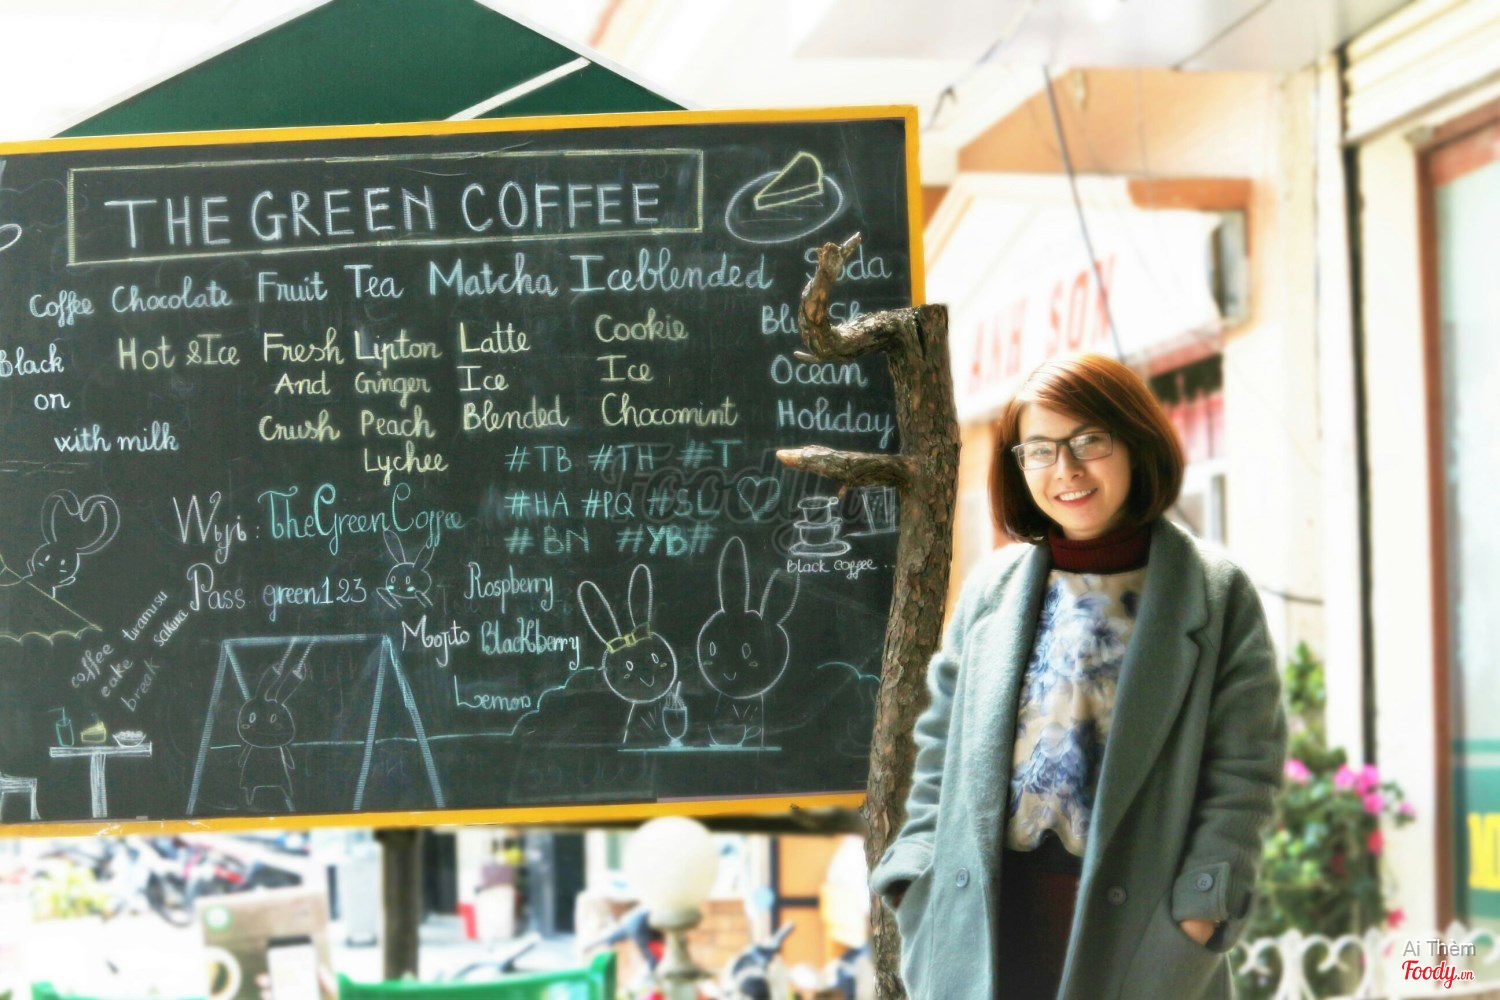 THE GREEN COFFEE
Coffee Chocolate Fruit Tea Matcha Iceblended Soda
Black
or
with milk
Hot & Ice
Fresh
And
Crush
Lipton
Ginger
Peach
Lychee
Latte
Ice
Blended
Cookie
Ice
Chocomint
Blue Sky
Ocean
Holiday
#TB #TH #T
#HA #PQ #SL
#BN #YB#
Wifi: TheGreenCoffee
Pass green123
Black coffee ..
Rospberry
Mojito Blackberry
Lemon
coffee tiramisu
cake sakura
break
ANH SƠN
Foody.vn
Ai Thèm
Foody.vn